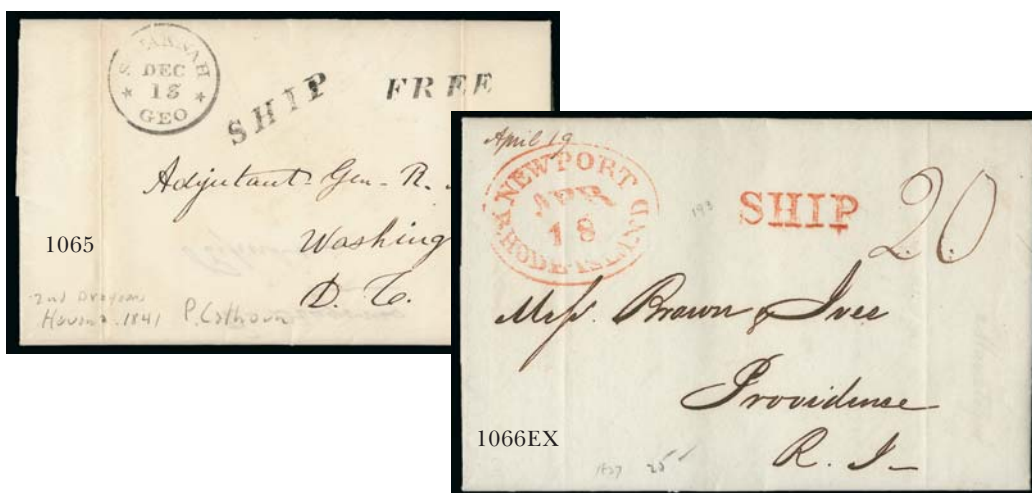 SAVANNAH
DEC
13
GEO
SHIP
FREE
Adjutant Gen - R.
Washing
D. C.
1065
2nd Dragoons
Havana 1841 P. Calhoun
April 19
NEWPORT
APR
18
RHODE-ISLAND
193
SHIP
20
Messrs. Brown & Ives
Providence
R. I-
1066EX
1837 25